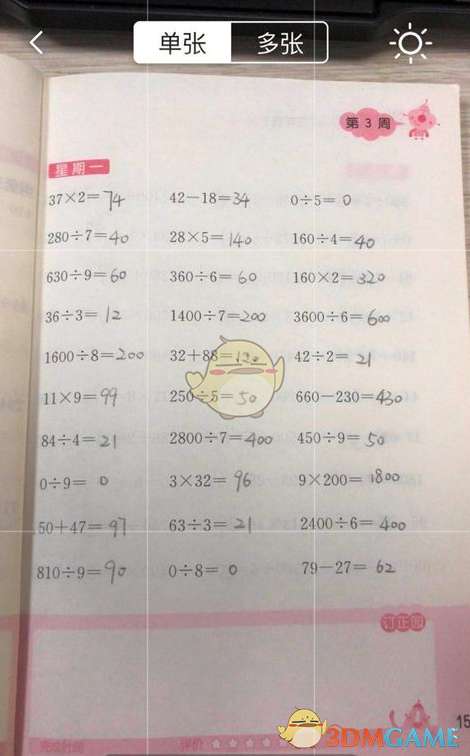 单张 多张
第3周
星期一
37×2=74 42-18=34 0÷5=0
280÷7=40 28×5=140 160÷4=40
630÷9=60 360÷6=60 160×2=320
36÷3=12 1400÷7=200 3600÷6=600
1600÷8=200 32+88=120 42÷2=21
11×9=99 250÷5=50 660-230=430
84÷4=21 2800÷7=400 450÷9=50
0÷9=0 3×32=96 9×200=1800
50+47=97 63÷3=21 2400÷6=400
810÷9=90 0÷8=0 79-27=62
订正栏
15
完成时间 评价
3DMGAME